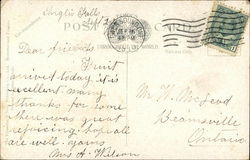 POST CARD
Dear friends,
Fruit
arrived today. it is
excellent many
thanks for some
there was great
rejoicing. hope all
are well. yours
Mrs A. Wilson
Mr. W. McLeod
Beamsville
Ontario